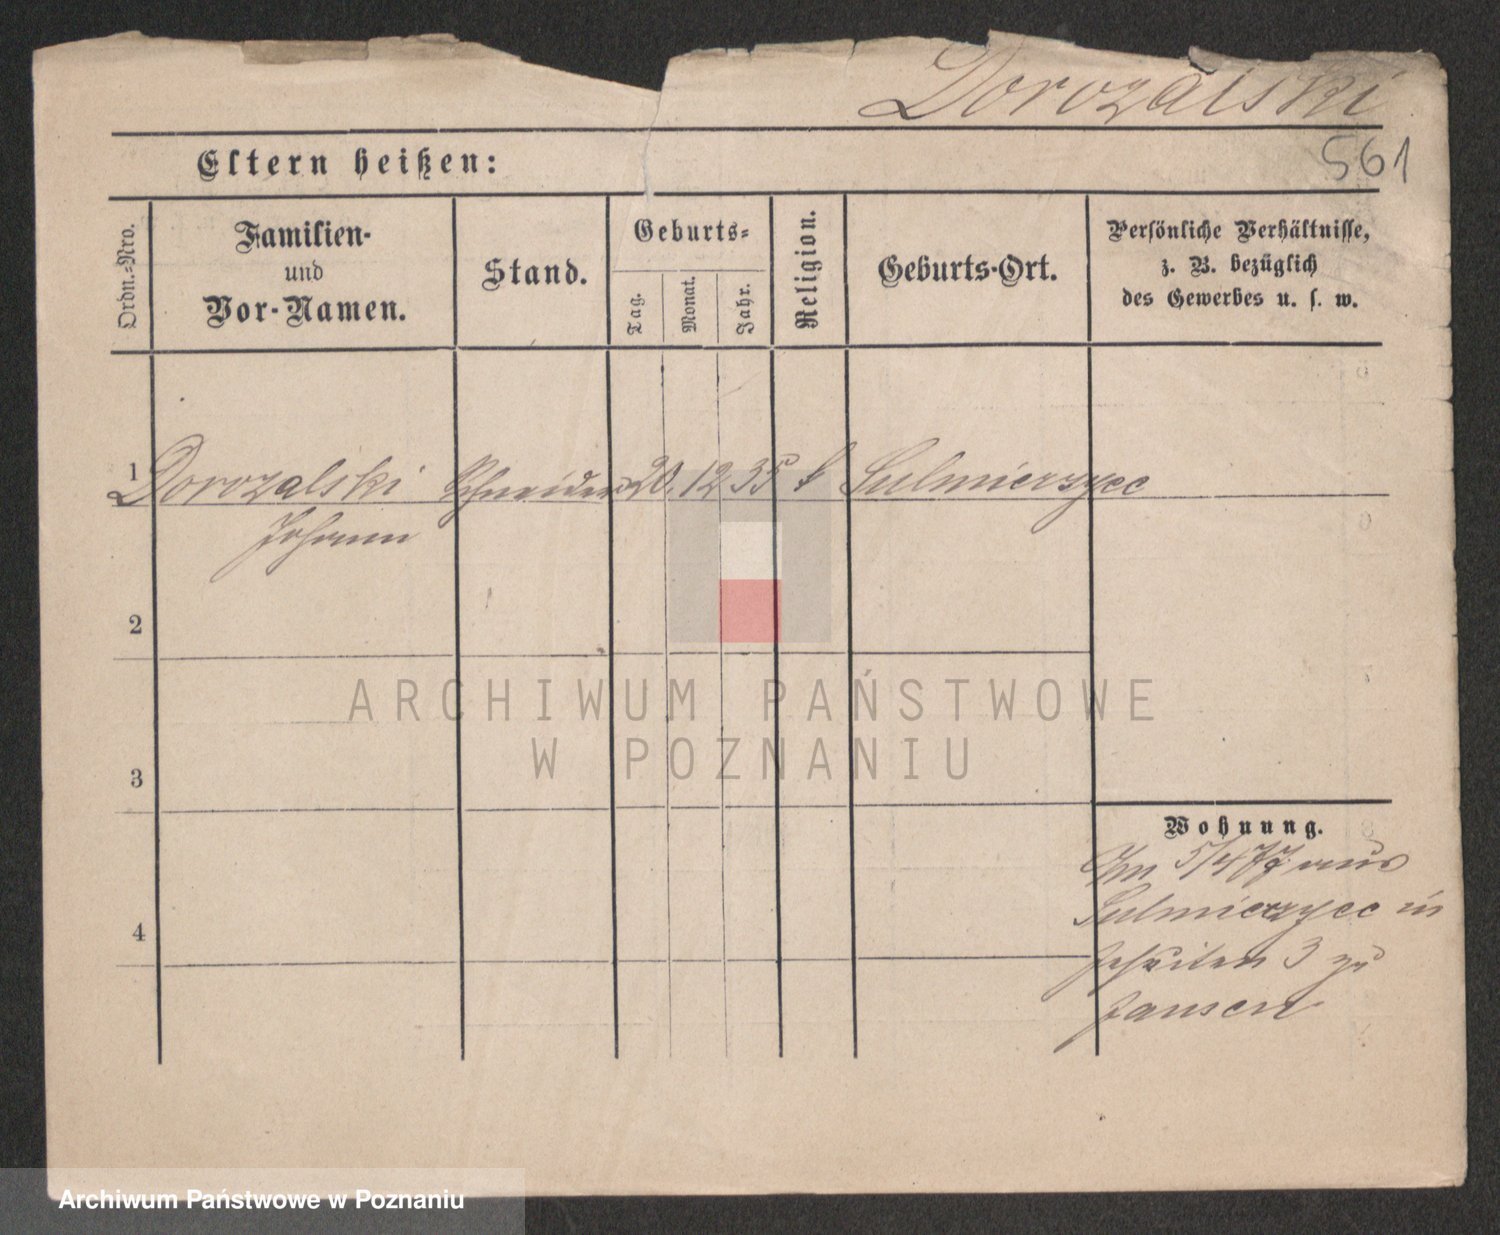 Dorozalski
561
Eltern heißen:
Ordn.-Nro.
Familien-
und
Vor-Namen.
Stand.
Geburts-
Tag.
Monat.
Jahr.
Religion.
Geburts-Ort.
Persönliche Verhältnisse,
z. B. bezüglich
des Gewerbes u. s. w.
1 Dorozalski Schneider 20. 12 35 k Sulmierzyce
Johann
2
3
4
Wohnung.
Am 5/4 77 aus
Sulmierzyce in
3 zu
Jansen
ARCHIWUM PAŃSTWOWE
W POZNANIU
Archiwum Państwowe w Poznaniu